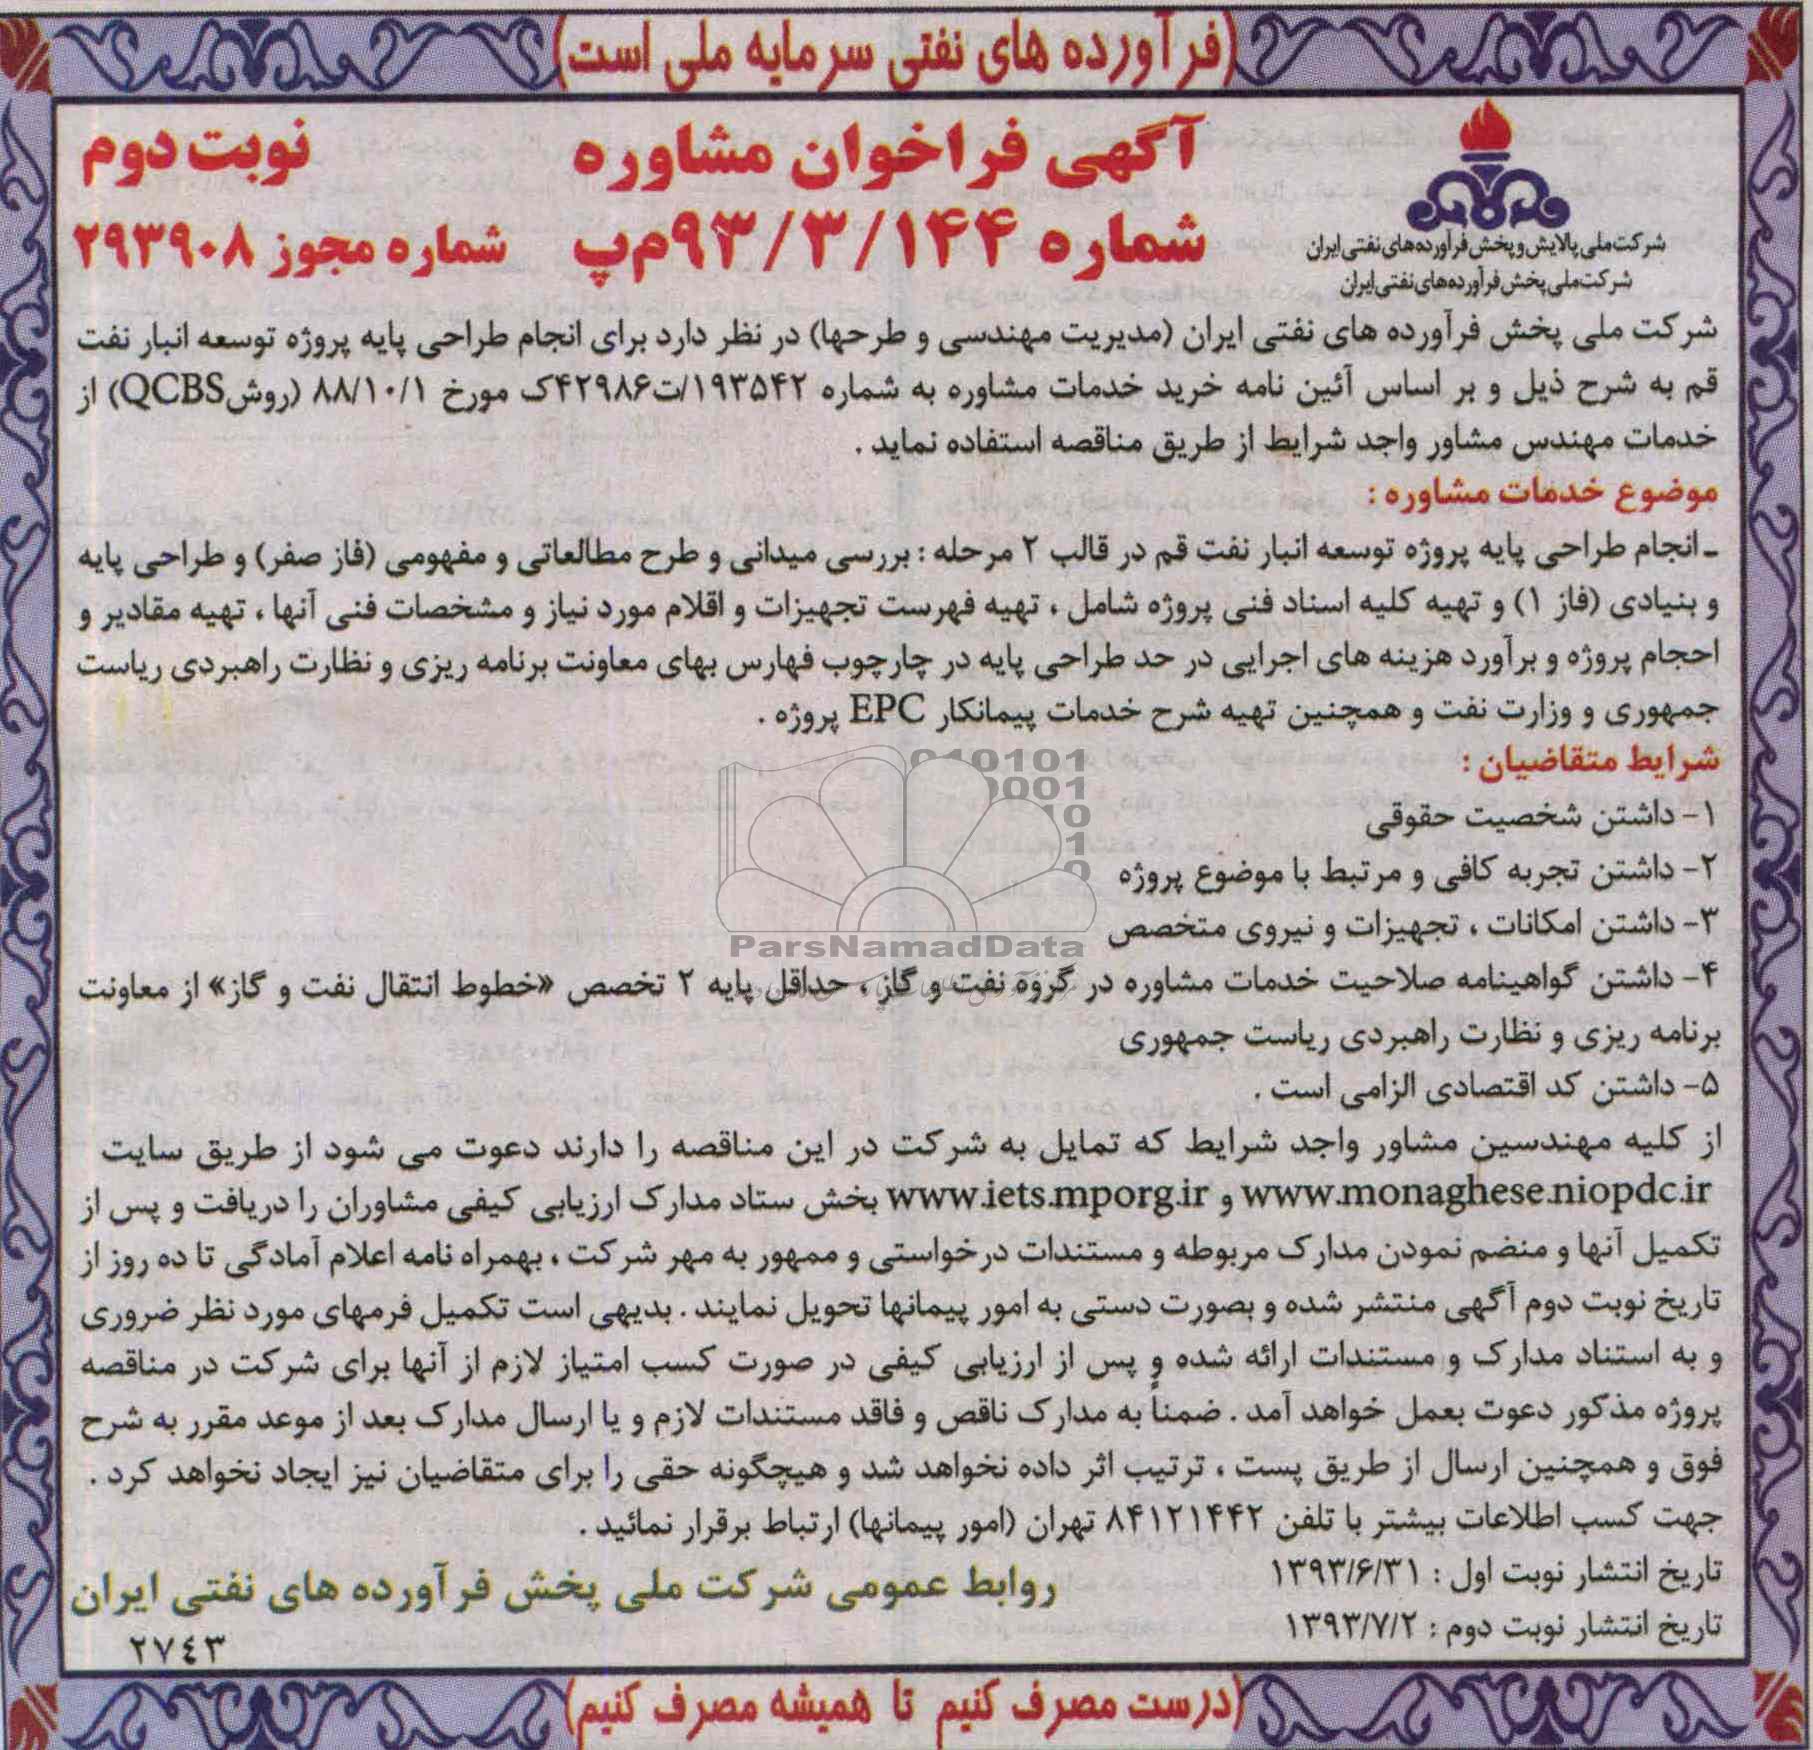 (فرآورده های نفتی سرمایه ملی است)
آگهی فراخوان مشاوره
نوبت دوم
شماره ۹۳/۳/۱۴۴م‌پ
شماره مجوز ۲۹۳۹۰۸
شرکت ملی پالایش و پخش فرآورده‌های نفتی ایران
شرکت ملی پخش فرآورده‌های نفتی ایران
شرکت ملی پخش فرآورده های نفتی ایران (مدیریت مهندسی و طرحها) در نظر دارد برای انجام طراحی پایه پروژه توسعه انبار نفت
قم به شرح ذیل و بر اساس آئین نامه خرید خدمات مشاوره به شماره ۱۹۳۵۴۲/ت۴۲۹۸۶ک مورخ ۸۸/۱۰/۱ (روشQCBS) از
خدمات مهندس مشاور واجد شرایط از طریق مناقصه استفاده نماید .
موضوع خدمات مشاوره :
ـ انجام طراحی پایه پروژه توسعه انبار نفت قم در قالب ۲ مرحله : بررسی میدانی و طرح مطالعاتی و مفهومی (فاز صفر) و طراحی پایه
و بنیادی (فاز ۱) و تهیه کلیه اسناد فنی پروژه شامل ، تهیه فهرست تجهیزات و اقلام مورد نیاز و مشخصات فنی آنها ، تهیه مقادیر و
احجام پروژه و برآورد هزینه های اجرایی در حد طراحی پایه در چارچوب فهارس بهای معاونت برنامه ریزی و نظارت راهبردی ریاست
جمهوری و وزارت نفت و همچنین تهیه شرح خدمات پیمانکار EPC پروژه .
شرایط متقاضیان :
۱- داشتن شخصیت حقوقی
۲- داشتن تجربه کافی و مرتبط با موضوع پروژه
۳- داشتن امکانات ، تجهیزات و نیروی متخصص
ParsNamadData
۴- داشتن گواهینامه صلاحیت خدمات مشاوره در گروه نفت و گاز ، حداقل پایه ۲ تخصص «خطوط انتقال نفت و گاز» از معاونت
برنامه ریزی و نظارت راهبردی ریاست جمهوری
۵- داشتن کد اقتصادی الزامی است .
از کلیه مهندسین مشاور واجد شرایط که تمایل به شرکت در این مناقصه را دارند دعوت می شود از طریق سایت
www.monaghese.niopdc.ir و www.iets.mporg.ir بخش ستاد مدارک ارزیابی کیفی مشاوران را دریافت و پس از
تکمیل آنها و منضم نمودن مدارک مربوطه و مستندات درخواستی و ممهور به مهر شرکت ، بهمراه نامه اعلام آمادگی تا ده روز از
تاریخ نوبت دوم آگهی منتشر شده و بصورت دستی به امور پیمانها تحویل نمایند . بدیهی است تکمیل فرمهای مورد نظر ضروری
و به استناد مدارک و مستندات ارائه شده و پس از ارزیابی کیفی در صورت کسب امتیاز لازم از آنها برای شرکت در مناقصه
پروژه مذکور دعوت بعمل خواهد آمد . ضمناً به مدارک ناقص و فاقد مستندات لازم و یا ارسال مدارک بعد از موعد مقرر به شرح
فوق و همچنین ارسال از طریق پست ، ترتیب اثر داده نخواهد شد و هیچگونه حقی را برای متقاضیان نیز ایجاد نخواهد کرد .
جهت کسب اطلاعات بیشتر با تلفن ۸۴۱۲۱۴۴۲ تهران (امور پیمانها) ارتباط برقرار نمائید .
تاریخ انتشار نوبت اول : ۱۳۹۳/۶/۳۱
روابط عمومی شرکت ملی پخش فرآورده های نفتی ایران
تاریخ انتشار نوبت دوم : ۱۳۹۳/۷/۲
۲۷٤۳
(درست مصرف کنیم تا همیشه مصرف کنیم)